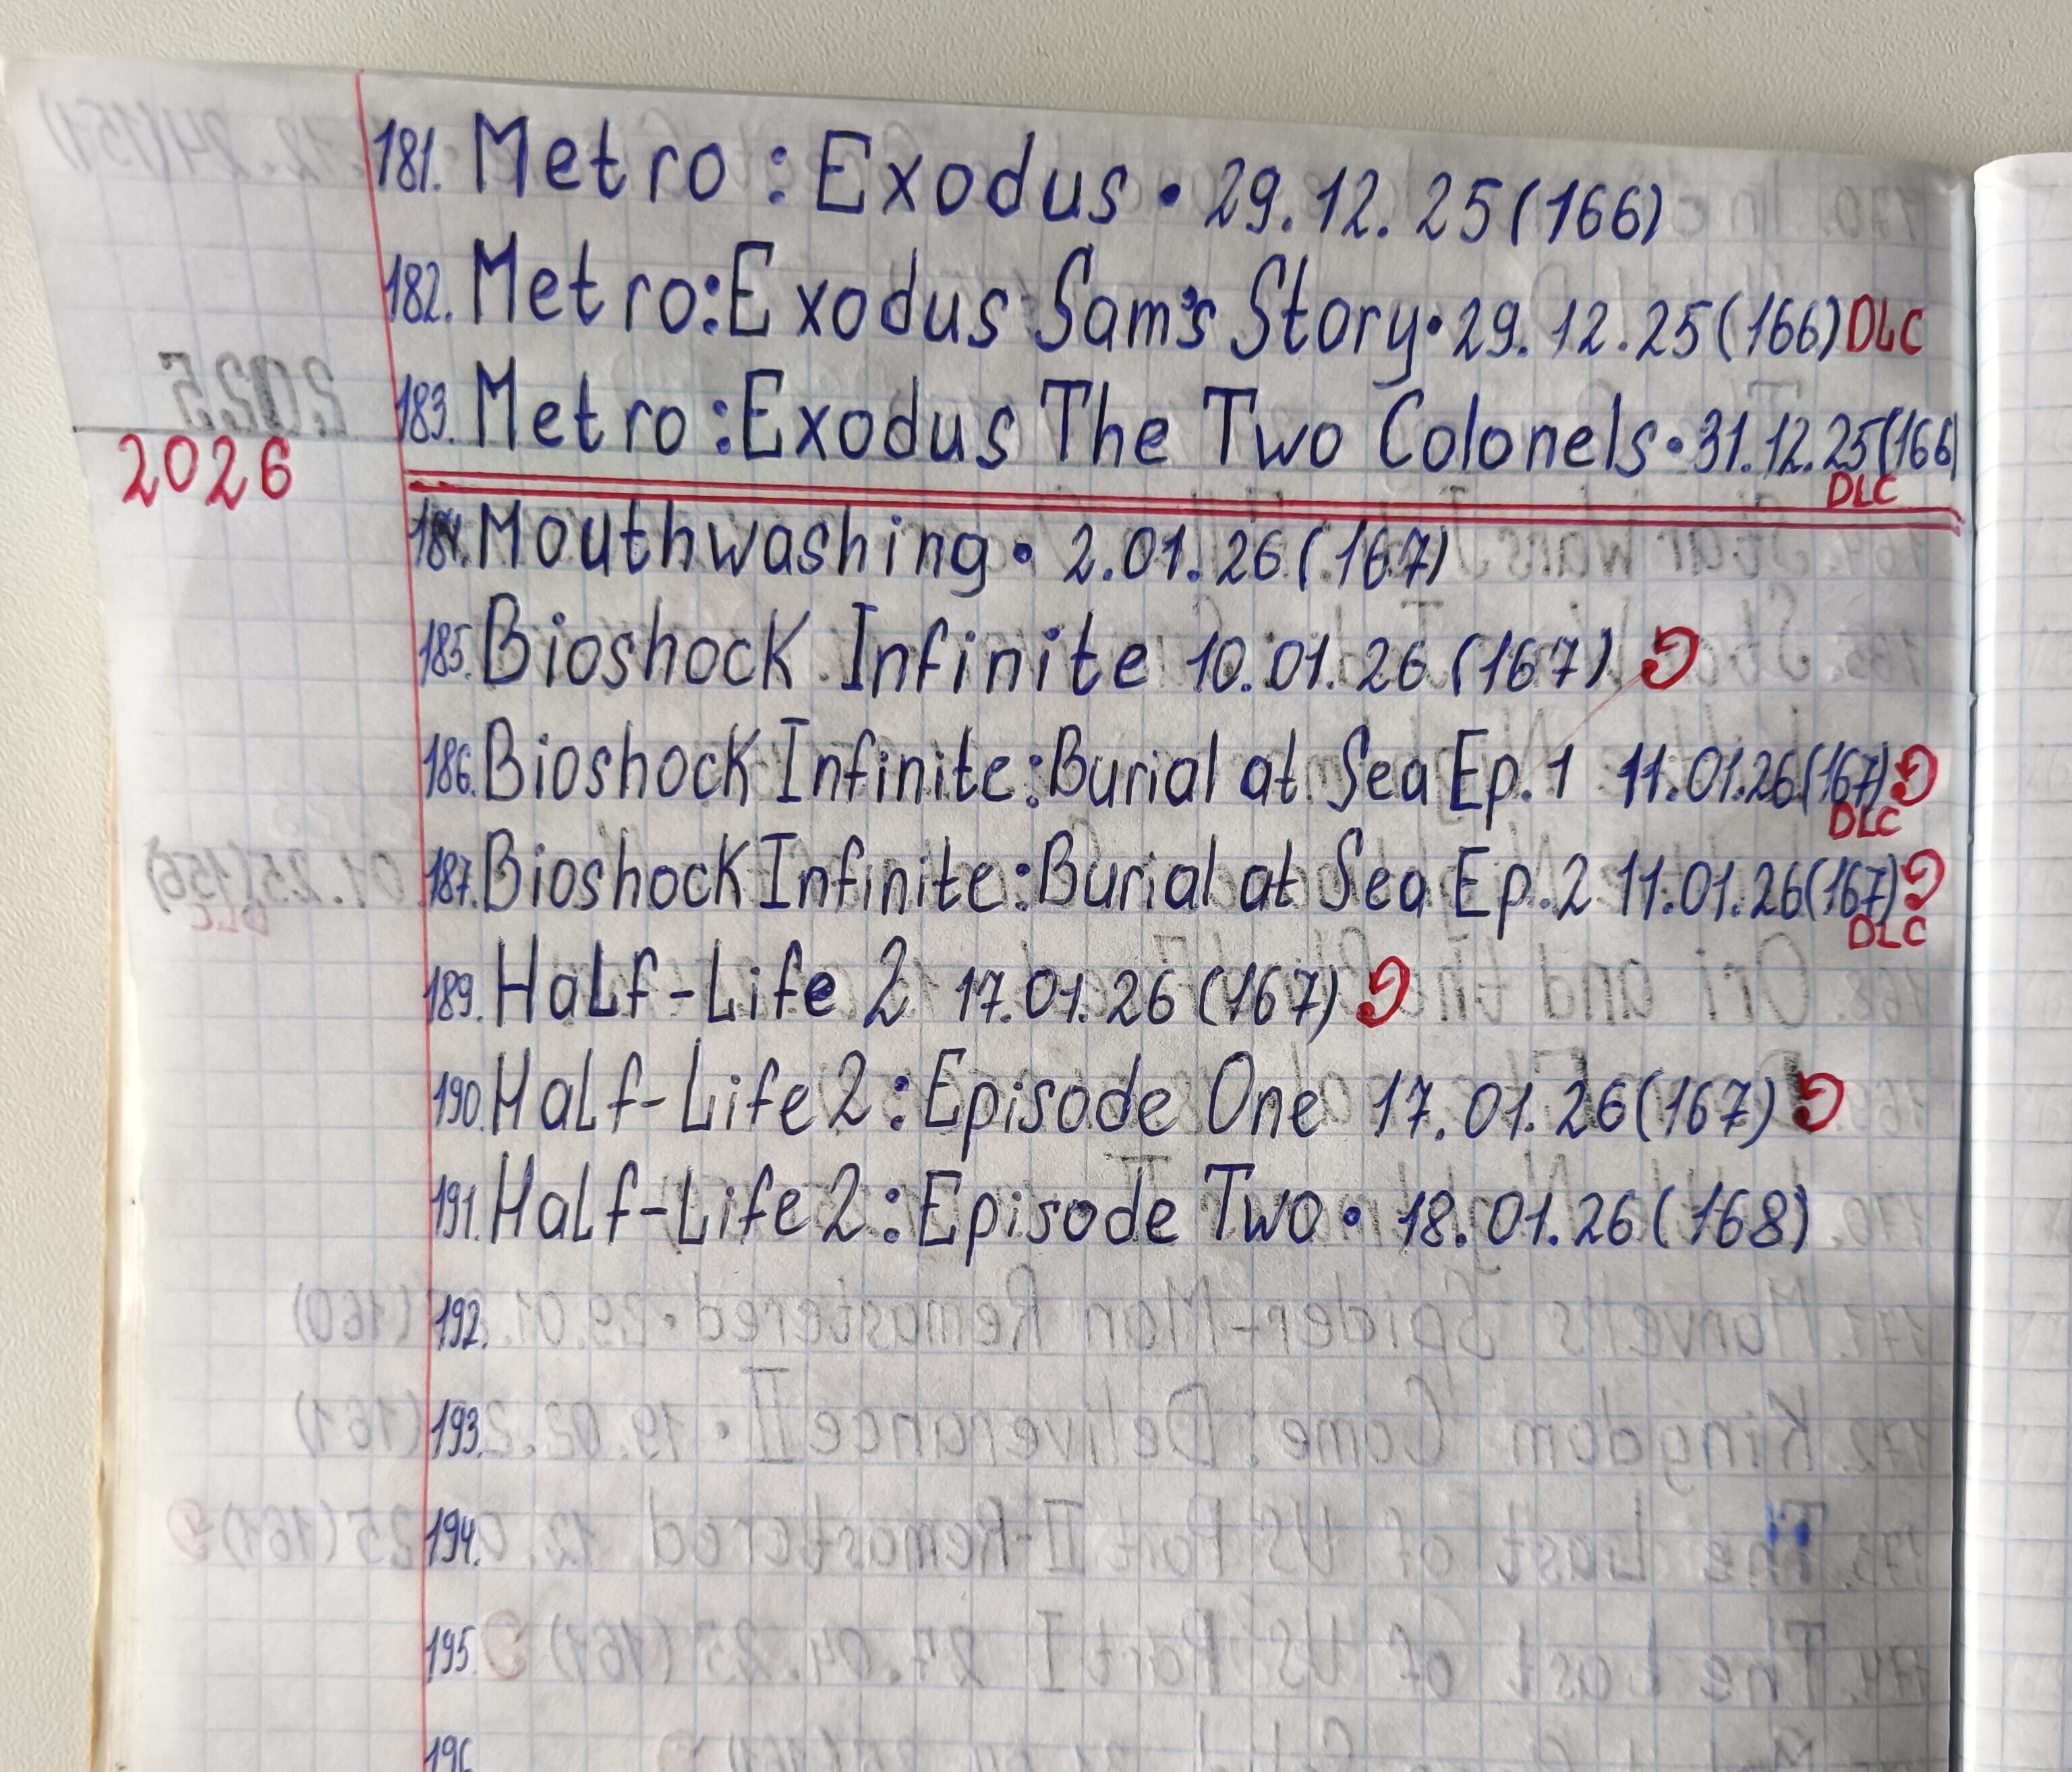 181. Metro : Exodus • 29.12.25(166)
182. Metro:Exodus Sam's Story•29.12.25(166)DLC
183. Metro:Exodus The Two Colonels•31.12.25(166)
DLC
2026
184. Mouthwashing• 2.01.26(167)
185. Bioshock Infinite 10.01.26(167)
186. Bioshock Infinite:Burial at Sea Ep.1 11.01.26(167)
DLC
187. Bioshock Infinite:Burial at Sea Ep.2 11.01.26(167)
DLC
189. Half-Life 2 17.01.26(167)
190. Half-Life 2:Episode One 17.01.26(167)
191. Half-Life 2:Episode Two• 18.01.26(168)
192.
193.
194.
195.
196